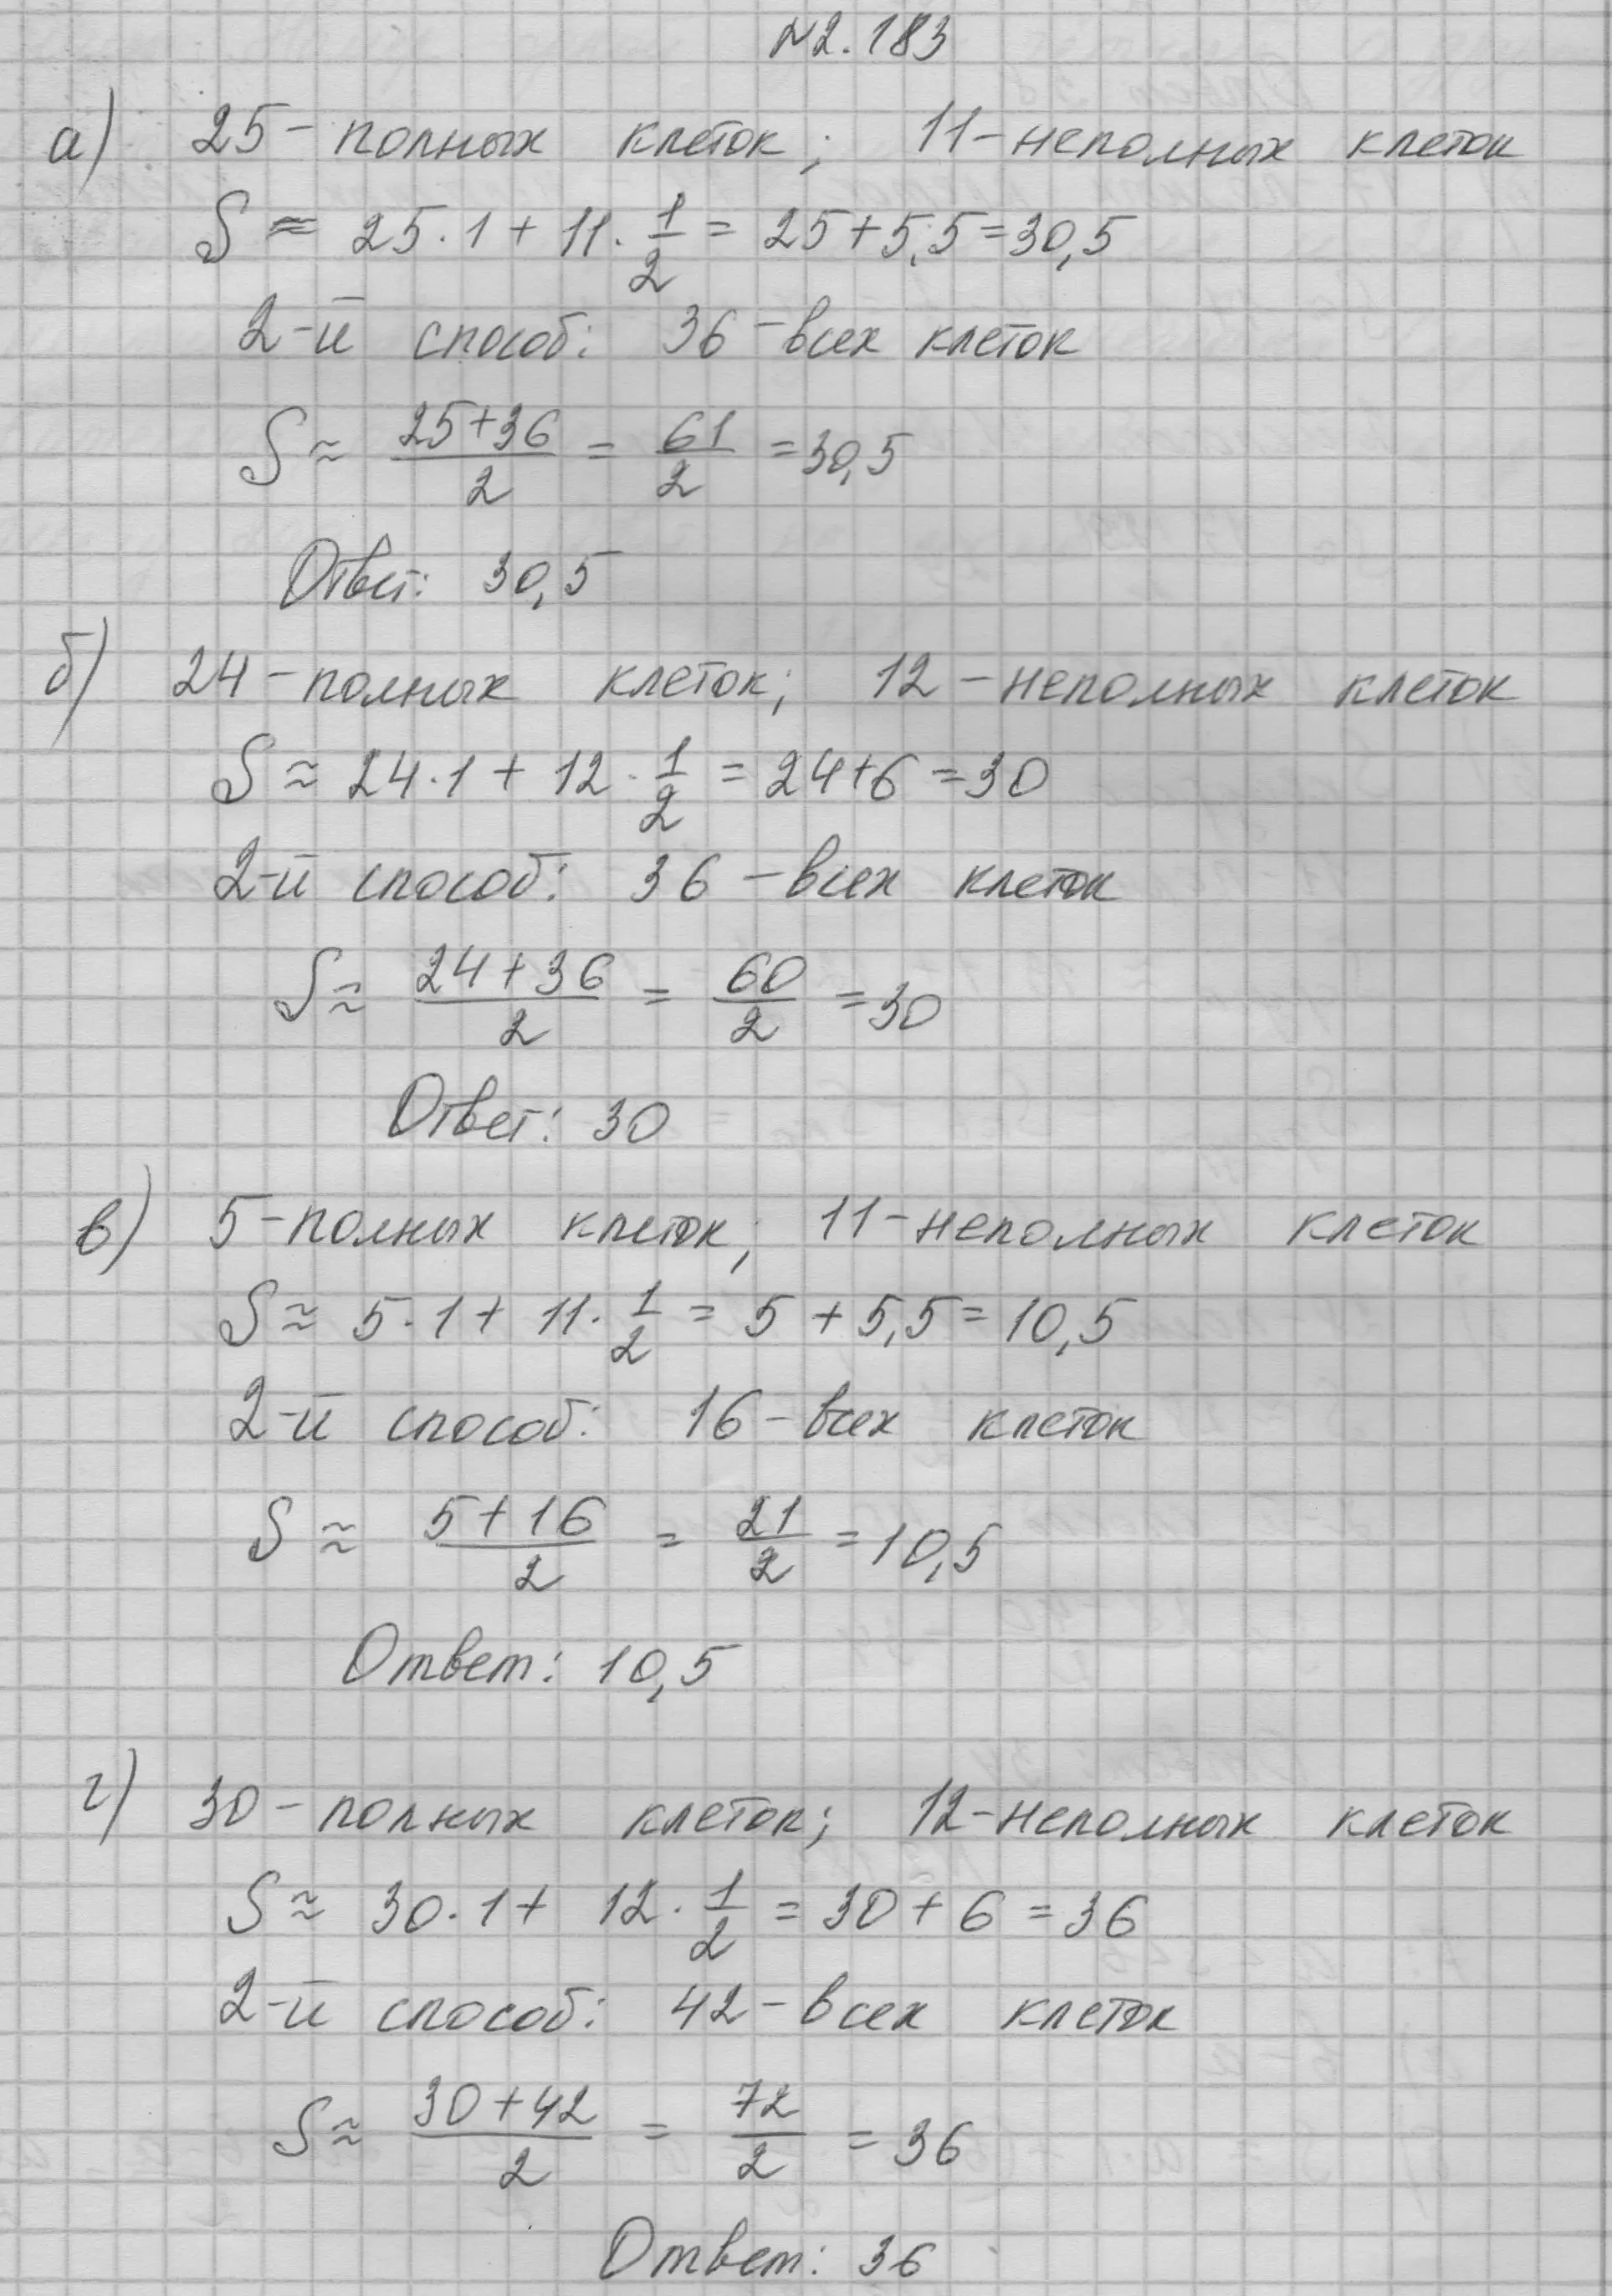 №2.183
а) 25 - полных клеток; 11 - неполных клеток
S ≈ 25·1 + 11·1/2 = 25+5,5=30,5
2-й способ: 36 - всех клеток
S ≈ (25+36)/2 = 61/2 = 30,5
Ответ: 30,5
б) 24 - полных клеток; 12 - неполных клеток
S ≈ 24·1 + 12·1/2 = 24+6 = 30
2-й способ: 36 - всех клеток
S ≈ (24+36)/2 = 60/2 = 30
Ответ: 30
в) 5 - полных клеток; 11 - неполных клеток
S ≈ 5·1 + 11·1/2 = 5 + 5,5 = 10,5
2-й способ: 16 - всех клеток
S ≈ (5+16)/2 = 21/2 = 10,5
Ответ: 10,5
г) 30 - полных клеток; 12 - неполных клеток
S ≈ 30·1 + 12·1/2 = 30 + 6 = 36
2-й способ: 42 - всех клеток
S ≈ (30+42)/2 = 72/2 = 36
Ответ: 36